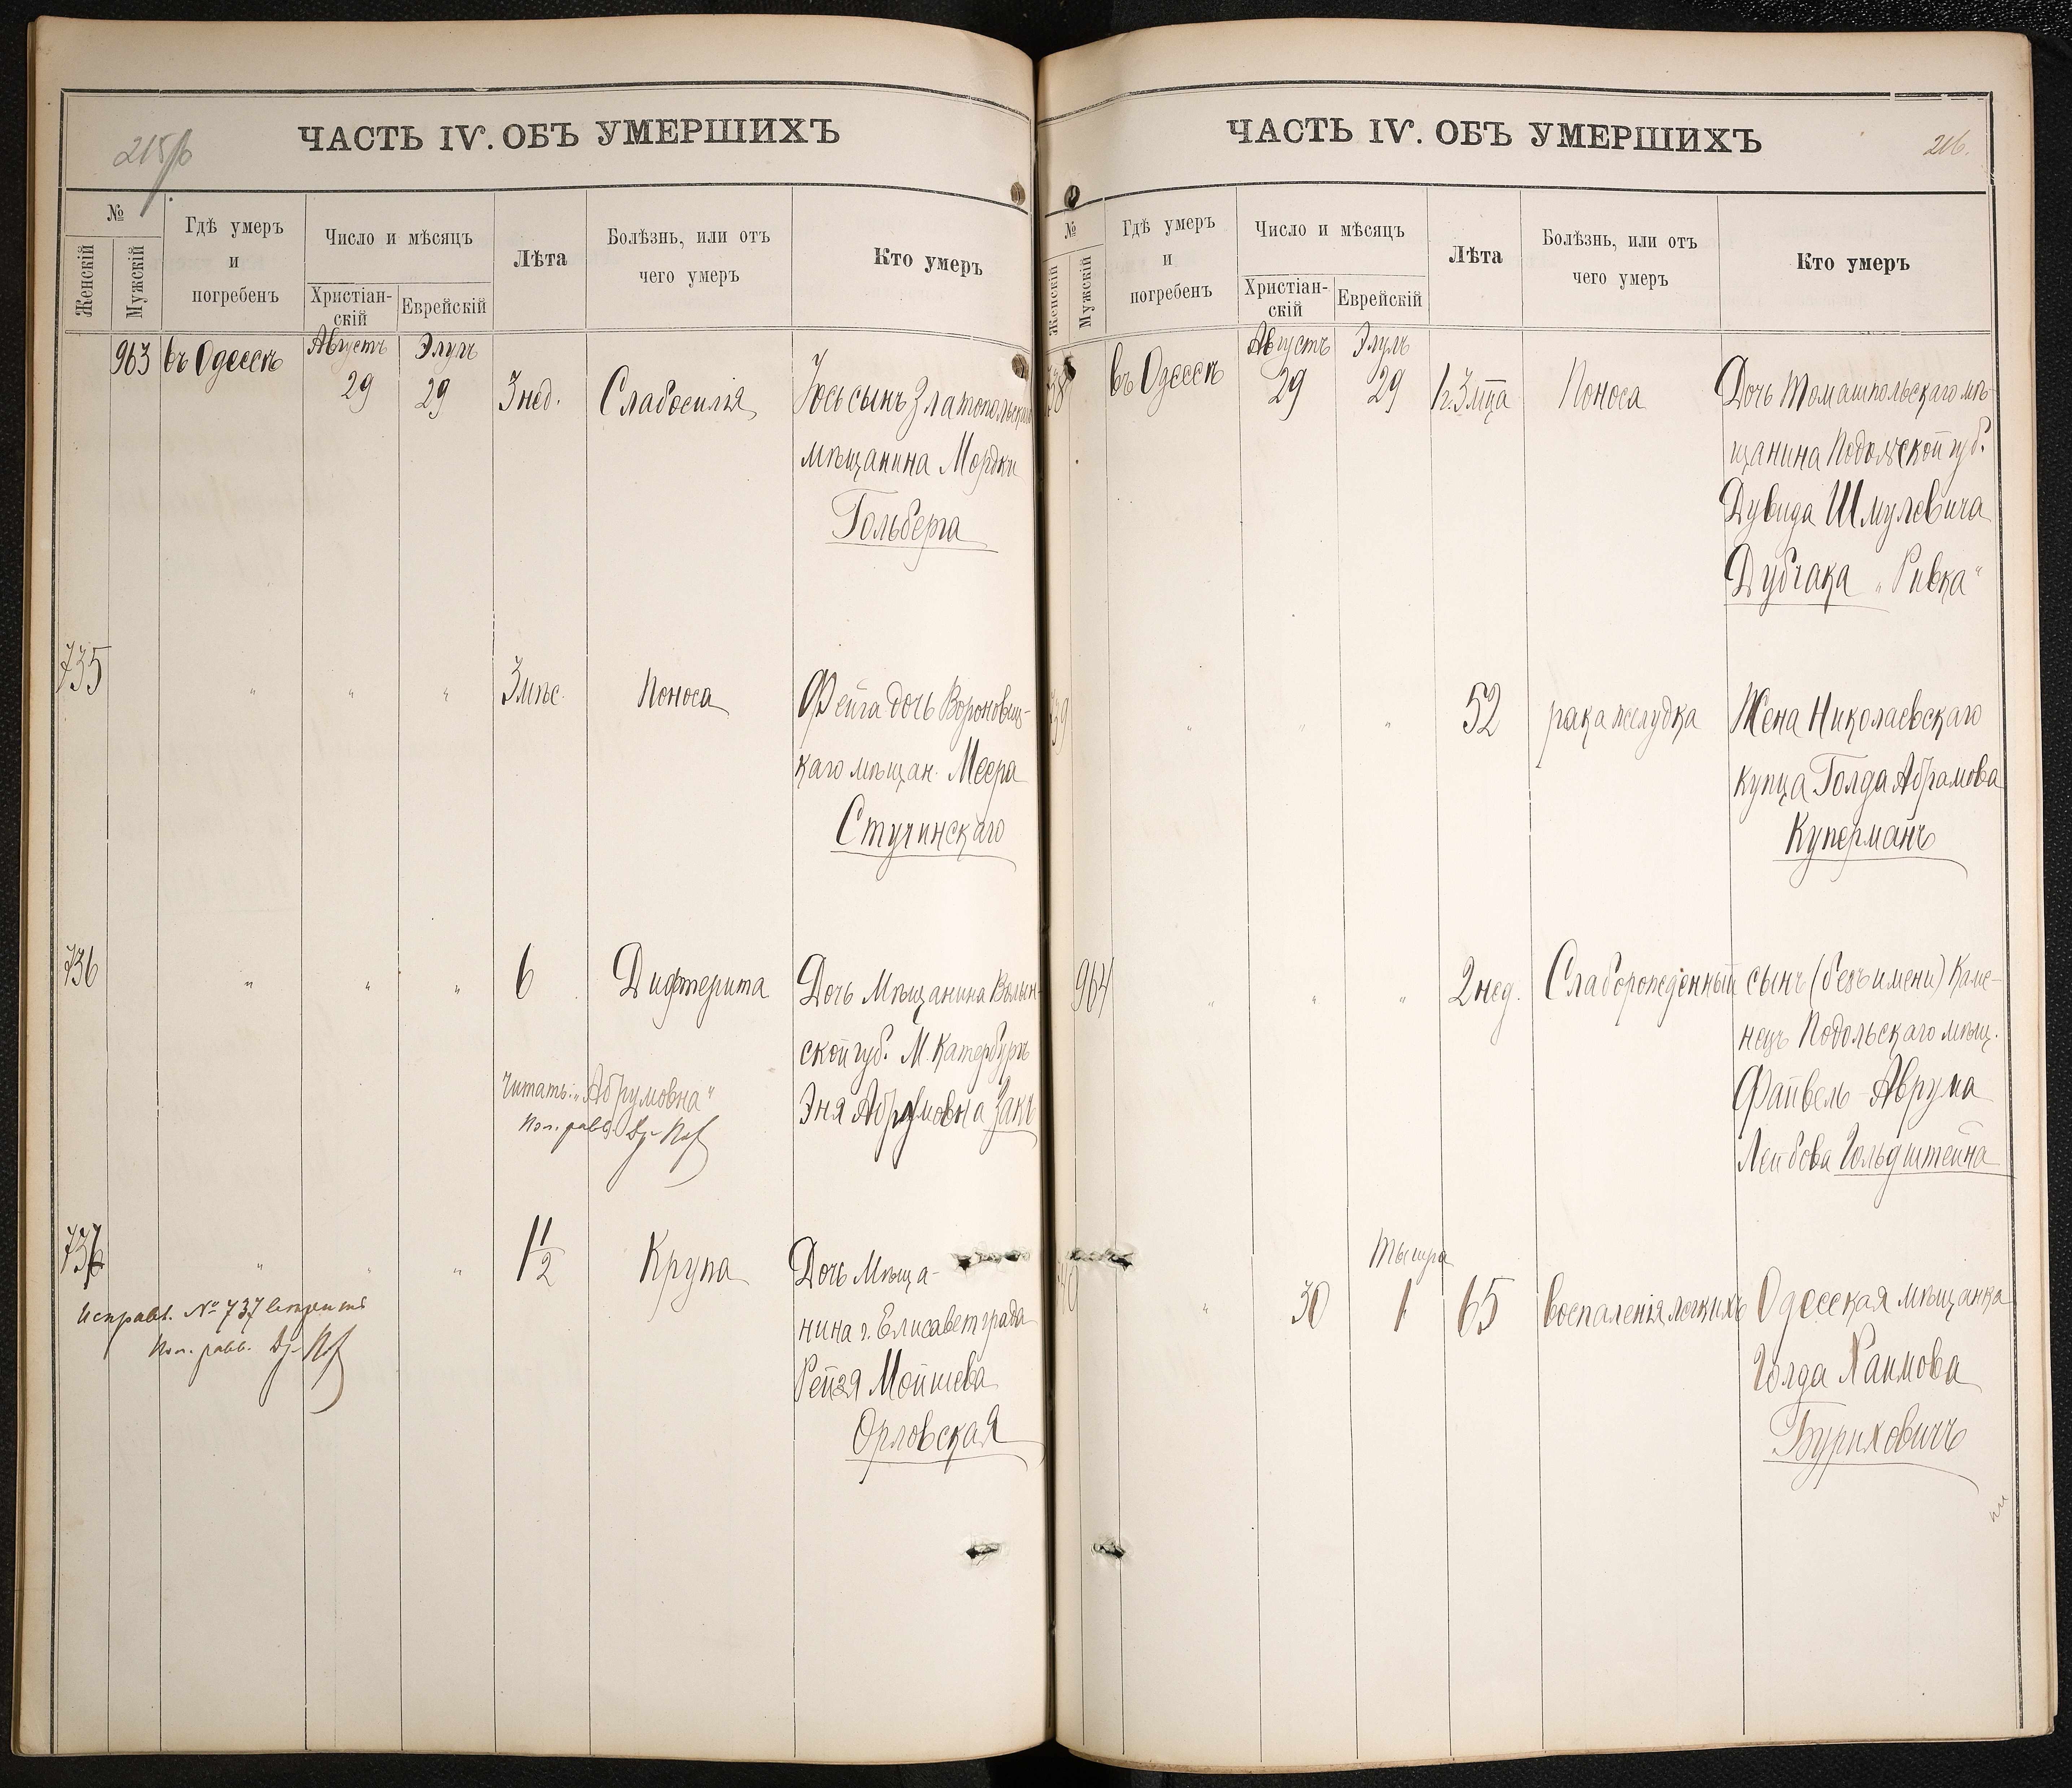 215/б
ЧАСТЬ IV. ОБЪ УМЕРШИХЪ
№
Женскій
Мужскій
Гдѣ умеръ
и
погребенъ
Число и мѣсяцъ
Христіан-
скій
Еврейскій
Лѣта
Болѣзнь, или отъ
чего умеръ
Кто умеръ
963 въ Одессѣ Августъ 29 Элулъ 29 3 нед. Слабосилія Іось сынъ Златопольскаго
мѣщанина Мордки
Гольберга
735 " " " 3 мѣс. Поноса Фейга дочь Вороновиц-
каго мѣщан. Меера
Стучинскаго
736 " " " 6 Дифтерита Дочь Мѣщанина Волын-
ской губ. М. Катербургъ
Эня Абрумовна Закъ
Читать: "Абрумовна"
Пом. равв.
737 " " " 1 1/2 Крупа Дочь Мѣща-
нина г. Елисаветграда
Рейзя Мойшева
Орловская
Исправл. № 737
Пом. равв.
216.
ЧАСТЬ IV. ОБЪ УМЕРШИХЪ
№
Женскій
Мужскій
Гдѣ умеръ
и
погребенъ
Число и мѣсяцъ
Христіан-
скій
Еврейскій
Лѣта
Болѣзнь, или отъ
чего умеръ
Кто умеръ
738 въ Одессѣ Августъ 29 Элулъ 29 1 г. 3 мца Поноса Дочь Томашпольскаго мѣ-
щанина Подольской губ.
Дувида Шмулевича
Дубчака "Ривка"
739 " " " 52 рака желудка Жена Николаевскаго
купца Голда Абрамова
Куперманъ
964 " " " 2 нед. Слаборожденный сынъ (безъ имени) Каме-
нецъ Подольскаго мѣщ.
Файвель-Аврума
Лейбова Гольдштейна
Тышра
" 30 1 65 воспаленія легкихъ Одесская мѣщанка
Голда Хаимова
Буриховичъ